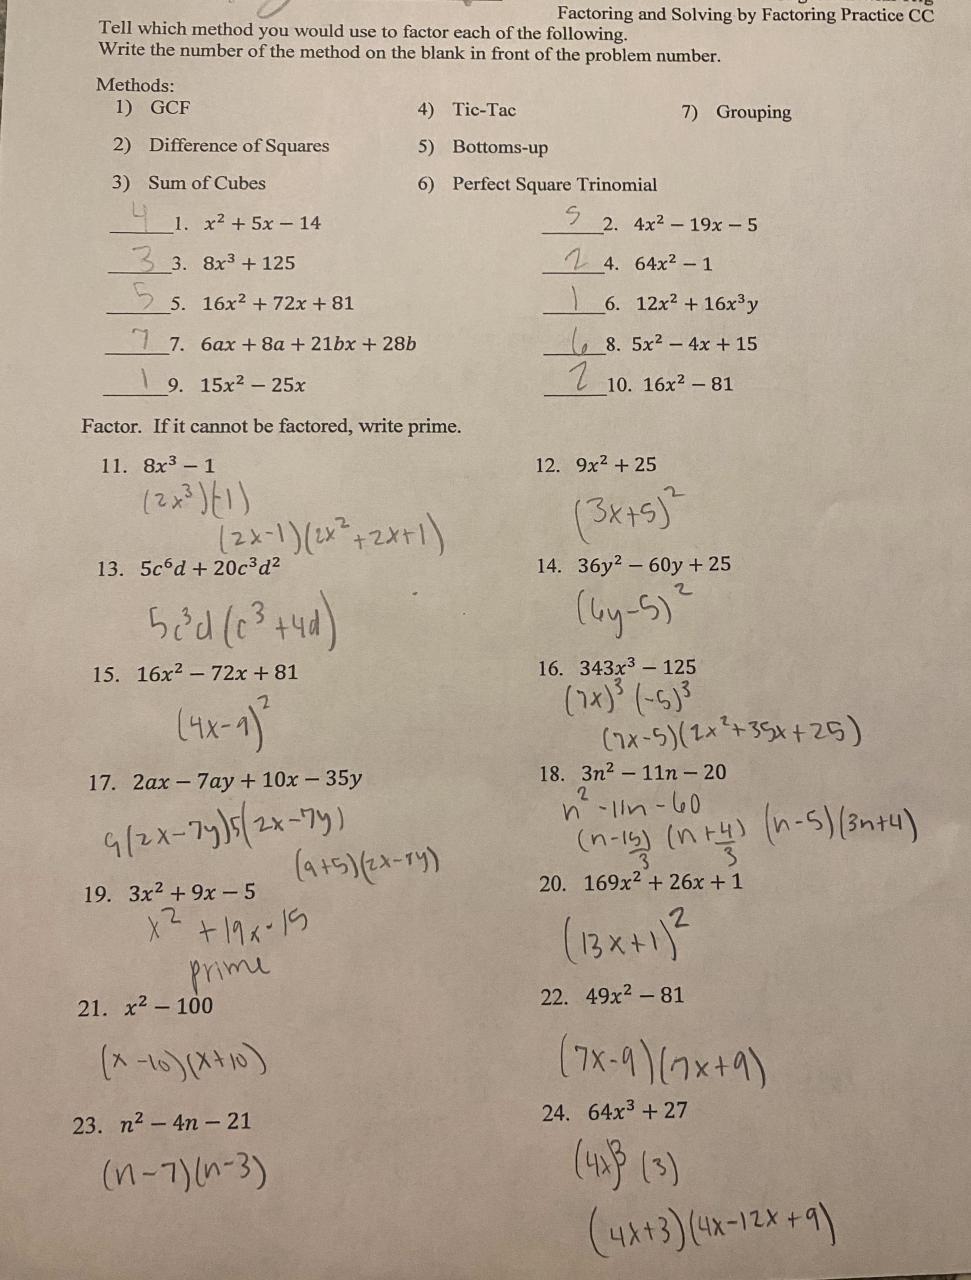 Factoring and Solving by Factoring Practice CC
Tell which method you would use to factor each of the following.
Write the number of the method on the blank in front of the problem number.
Methods:
1) GCF 4) Tic-Tac 7) Grouping
2) Difference of Squares 5) Bottoms-up
3) Sum of Cubes 6) Perfect Square Trinomial
4 1. x² + 5x − 14 5 2. 4x² − 19x − 5
3 3. 8x³ + 125 2 4. 64x² − 1
5 5. 16x² + 72x + 81 1 6. 12x² + 16x³y
7 7. 6ax + 8a + 21bx + 28b 6 8. 5x² − 4x + 15
1 9. 15x² − 25x 2 10. 16x² − 81
Factor. If it cannot be factored, write prime.
11. 8x³ − 1 12. 9x² + 25
(2x³)(-1) (3x+5)²
(2x-1)(2x²+2x+1)
13. 5c⁶d + 20c³d² 14. 36y² − 60y + 25
5c³d(c³+4d) (6y-5)²
15. 16x² − 72x + 81 16. 343x³ − 125
(4x-9)² (7x)³ (-5)³
(7x-5)(2x²+35x+25)
17. 2ax − 7ay + 10x − 35y 18. 3n² − 11n − 20
a(2x-7y)5(2x-7y) n²-11n-60
(a+5)(2x-7y) (n-15/3) (n+4/3) (n-5)(3n+4)
19. 3x² + 9x − 5 20. 169x² + 26x + 1
x² +19x-15 (13x+1)²
prime
21. x² − 100 22. 49x² − 81
(x-10)(x+10) (7x-9)(7x+9)
23. n² − 4n − 21 24. 64x³ + 27
(n-7)(n-3) (4x)³ (3)
(4x+3)(4x-12x+9)